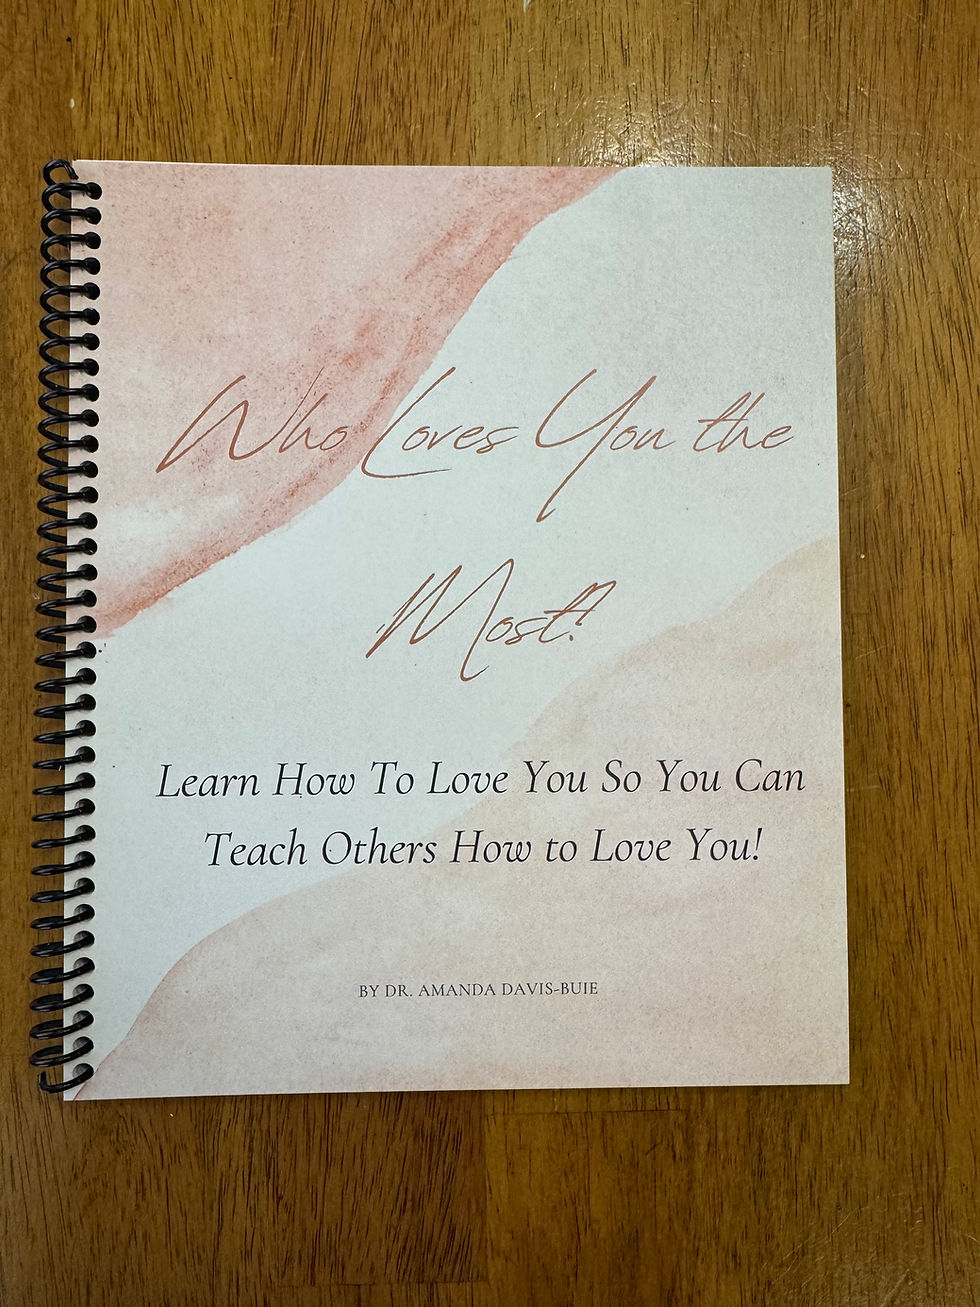 Who Loves You the
Most?
Learn How To Love You So You Can
Teach Others How to Love You!
BY DR. AMANDA DAVIS-BUIE